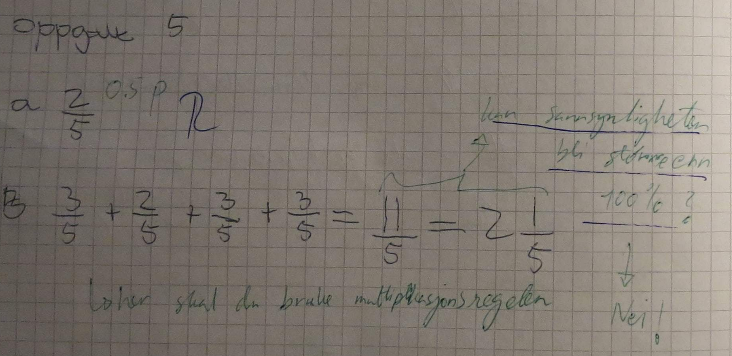 oppgave 5
a 2/5 0.5 p R
B 3/5 + 2/5 + 3/5 + 3/5 = 11/5 = 2 1/5
kan sannsynligheten
bli større enn
100% ?
Nei!
her skal du bruke multiplikasjonsregelen